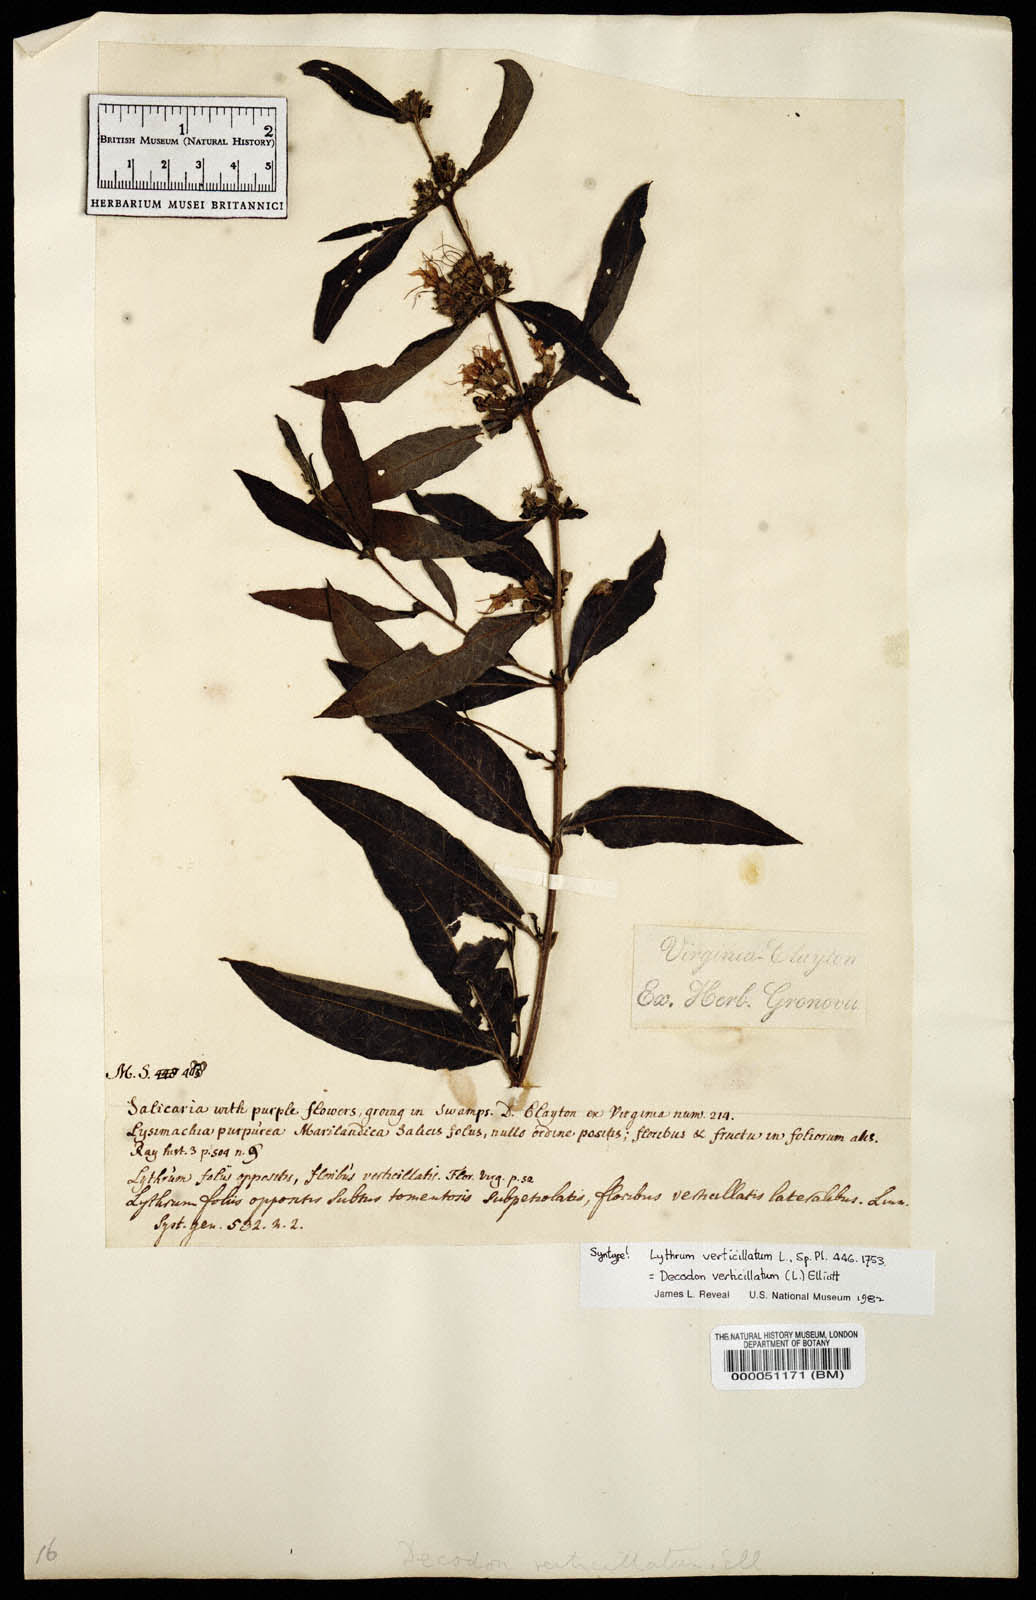 1 2
BRITISH MUSEUM (NATURAL HISTORY)
1 2 3 4 5
HERBARIUM MUSEI BRITANNICI
Virginia-Clayton
Ex. Herb. Gronovii
M. S.
Salicaria with purple flowers, groing in Swamps. D. Clayton ex Virginia num. 214.
Lysimachia purpurea Marilandica Salicis folus, nullo ordine positis; floribus & fructu in foliorum alis.
Ray hist. 3 p. 504 n. 9
Lythrum foliis oppositis, floribus verticillatis. Flor. Virg. p. 52
Lythrum foliis oppositis subtus tomentosis subpetiolatis, floribus verticillatis lateralibus. Linn.
Syst. gen. 582. n. 2.
Syntype! Lythrum verticillatum L., Sp. Pl. 446. 1753.
= Decodon verticillatum (L.) Elliott
James L. Reveal U.S. National Museum 1982
THE NATURAL HISTORY MUSEUM, LONDON
DEPARTMENT OF BOTANY
000051171 (BM)
16
Decodon verticillatum Ell